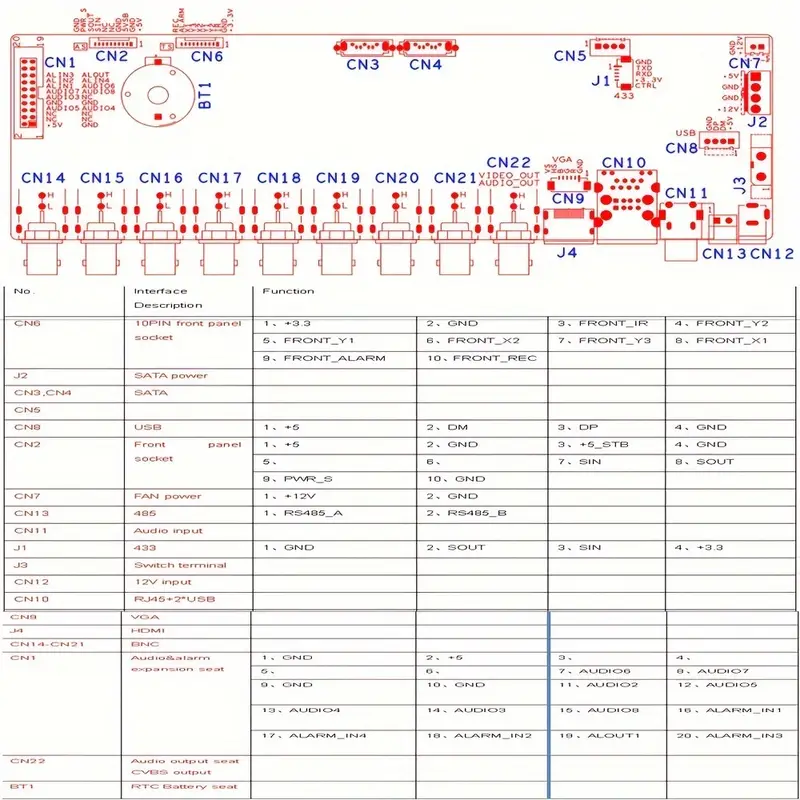 GND
PWR_S
SOUT
SIN
NC
NC
GND
5VSB
GND
+5V
REC
ALARM
GND
+3.3V
20
19
AS
CN2
1
TS
CN6
1
CN1
ALIN3 ALOUT
ALIN2 ALIN4
ALIN1 AUDIO8
AUDIO3 NC
GND GND
AUDIO5 AUDIO4
NC
NC
+5V GND
2
1
BT1
CN3
CN4
CN5
1
J1
GND
TXD
RXD
+3.3V
CTRL
433
GND
+12V
CN7
+5V
GND
GND
+12V
J2
USB
GND
DP
DM
+5V
CN8
1
J3
1
CN14 CN15 CN16 CN17 CN18 CN19 CN20 CN21
CN22
VIDEO_OUT
AUDIO_OUT
VGA
CN9
CN10
CN11
H H H H H H H H H
L L L L L L L L L
J4
CN13 CN12
No. Interface Description Function
CN6 10PIN front panel socket 1、+3.3 2、GND 3、FRONT_IR 4、FRONT_Y2
5、FRONT_Y1 6、FRONT_X2 7、FRONT_Y3 8、FRONT_X1
9、FRONT_ALARM 10、FRONT_REC
J2 SATA power
CN3,CN4 SATA
CN5
CN8 USB 1、+5 2、DM 3、DP 4、GND
CN2 Front panel socket 1、+5 2、GND 3、+5_STB 4、GND
5、 6、 7、SIN 8、SOUT
9、PWR_S 10、GND
CN7 FAN power 1、+12V 2、GND
CN13 485 1、RS485_A 2、RS485_B
CN11 Audio input
J1 433 1、GND 2、SOUT 3、SIN 4、+3.3
J3 Switch terminal
CN12 12V input
CN10 RJ45+2*USB
CN9 VGA
J4 HDMI
CN14-CN21 BNC
CN1 Audio&alarm expansion seat 1、GND 2、+5 3、 4、
5、 6、 7、AUDIO6 8、AUDIO7
9、GND 10、GND 11、AUDIO2 12、AUDIO5
13、AUDIO4 14、AUDIO3 15、AUDIO8 16、ALARM_IN1
17、ALARM_IN4 18、ALARM_IN2 19、ALOUT1 20、ALARM_IN3
CN22 Audio output seat
CVBS output
BT1 RTC Battery seat